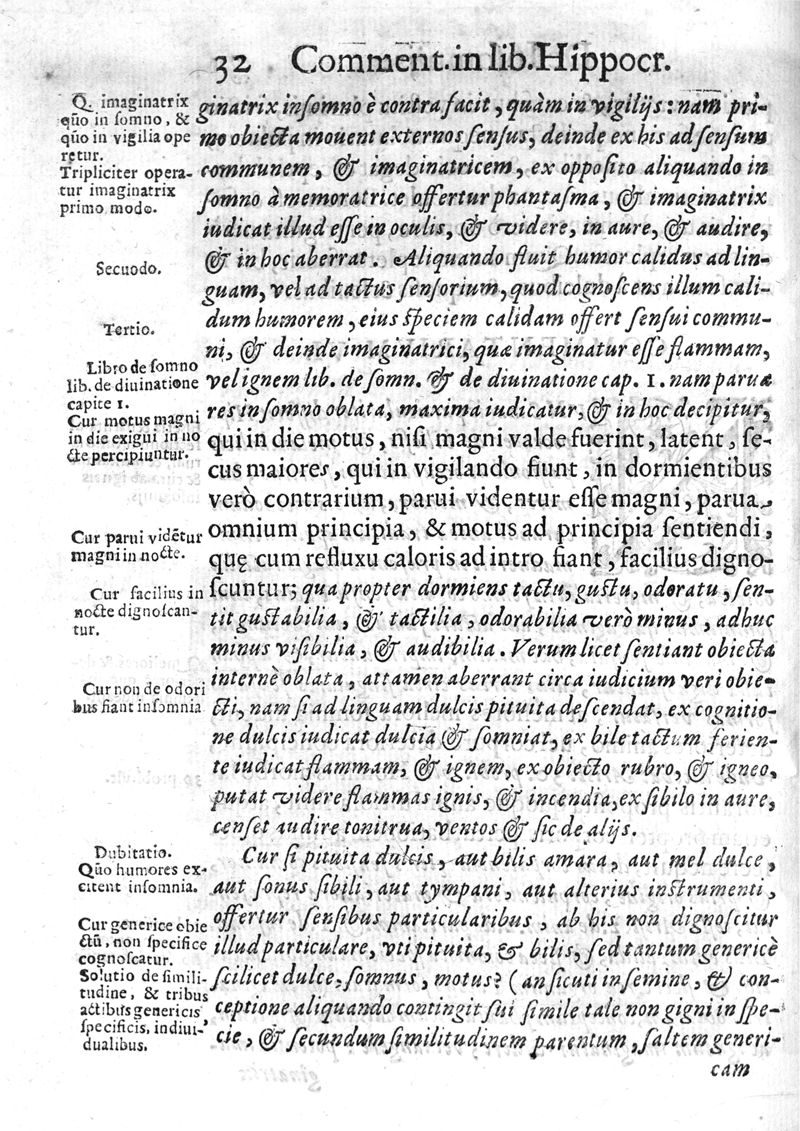 32 Comment. in lib. Hippocr.
Q. imaginatrix
quo in somno, &
quo in vigilia ope
retur.
Tripliciter opera-
tur imaginatrix
primo modo.
Secuodo.
Tertio.
Libro de somno
lib. de diuinatione
capite 1.
Cur motus magni
in die exigui in no
cte percipiuntur.
Cur parui vidẽtur
magni in nocte.
Cur facilius in
nocte dignoscan-
tur.
Cur non de odori
bus fiant insomnia
Dubitatio.
Quo humores ex-
citent insomnia.
Cur generice obie
ctũ, non specifice
cognoscatur.
Solutio de simili-
tudine, & tribus
actibus genericis
specificis, indiui-
dualibus.
ginatrix in somno è contra facit, quàm in vigilijs: nam pri-
mo obiecta mouent externos sensus, deinde ex his ad sensum
communem, & imaginatricem, ex opposito aliquando in
somno à memoratrice offertur phantasma, & imaginatrix
iudicat illud esse in oculis, & videre, in aure, & audire,
& in hoc aberrat. Aliquando fluit humor calidus ad lin-
guam, vel ad tactus sensorium, quod cognoscens illum cali-
dum humorem, eius speciem calidam offert sensui commu-
ni, & deinde imaginatrici, quæ imaginatur esse flammam,
vel ignem lib. de somn. & de diuinatione cap. 1. nam paruæ
res in somno oblata, maxima iudicatur, & in hoc decipitur,
qui in die motus, nisi magni valde fuerint, latent, se-
cus maiores, qui in vigilando fiunt, in dormientibus
verò contrarium, parui videntur esse magni, parua
omnium principia, & motus ad principia sentiendi,
quę cum refluxu caloris ad intro fiant, facilius digno-
scuntur; quapropter dormiens tactu, gustu, odoratu, sen-
tit gustabilia, & tactilia, odorabilia verò minus, adhuc
minus visibilia, & audibilia. Verum licet sentiant obiecta
internè oblata, attamen aberrant circa iudicium veri obie-
cti, nam si ad linguam dulcis pituita descendat, ex cognitio-
ne dulcis iudicat dulcia & somniat, ex bile tactum ferien-
te iudicat flammam, & ignem, ex obiecto rubro, & igneo,
putat videre flammas ignis, & incendia, ex sibilo in aure,
censet audire tonitrua, ventos & sic de alijs.
Cur si pituita dulcis, aut bilis amara, aut mel dulce,
aut sonus sibili, aut tympani, aut alterius instrumenti,
offertur sensibus particularibus, ab his non dignoscitur
illud particulare, vti pituita, & bilis, sed tantum genericè
scilicet dulce, somnus, motus? (an sicuti in semine, & con-
ceptione aliquando contingit sui simile tale non gigni in spe-
cie, & secundum similitudinem parentum, saltem generi-
cam